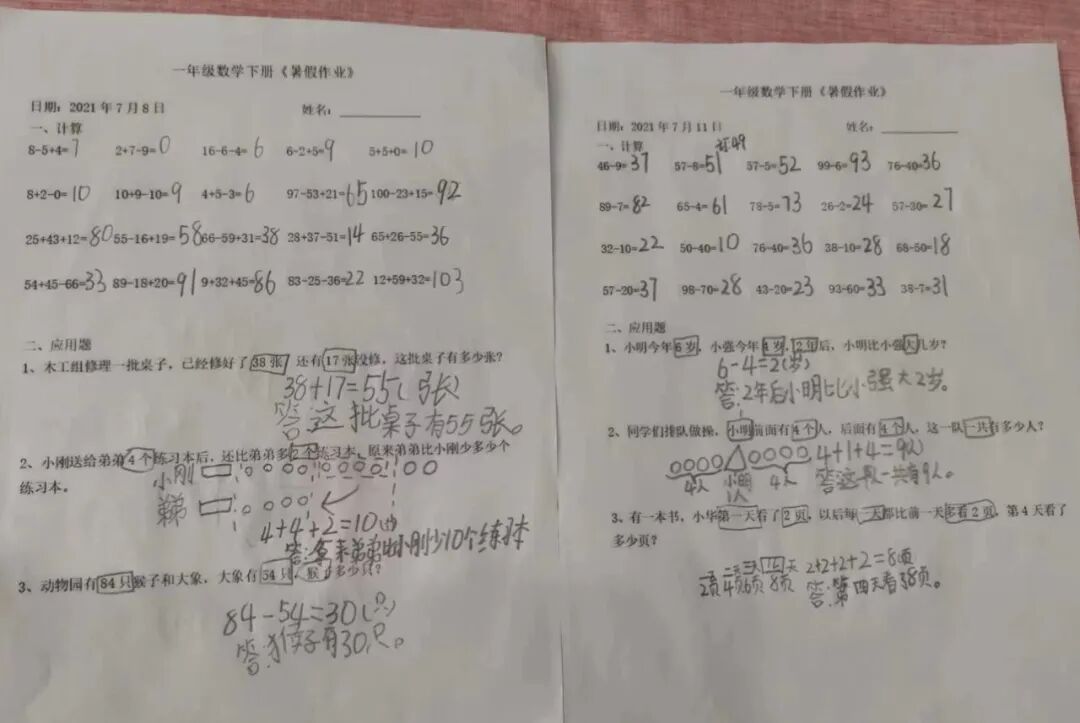 一年级数学下册《暑假作业》
日期：2021年7月8日 姓名：
一、计算
8-5+4=7 2+7-9=0 16-6-4=6 6-2+5=9 5+5+0=10
8+2-0=10 10+9-10=9 4+5-3=6 97-53+21=65 100-23+15=92
25+43+12=80 55-16+19=58 66-59+31=38 28+37-51=14 65+26-55=36
54+45-66=33 89-18+20=91 9+32+45=86 83-25-36=22 12+59+32=103
二、应用题
1、木工组修理一批桌子，已经修好了38张 还有17张没修，这批桌子有多少张？
38+17=55（张）
答：这批桌子有55张。
2、小刚送给弟弟4个练习本后，还比弟弟多2个练习本，原来弟弟比小刚少多少个
练习本。
小刚
弟弟
4+4+2=10
答：原来弟弟比小刚少10个练习本
3、动物园有84只猴子和大象，大象有54只，猴子多少只？
84-54=30（只）
答：猴子有30只。
一年级数学下册《暑假作业》
日期：2021年7月11日 姓名：
一、计算
46-9=37 57-8=51 57-5=52 99-6=93 76-40=36
89-7=82 65-4=61 78-5=73 26-2=24 57-30=27
32-10=22 50-40=10 76-40=36 38-10=28 68-50=18
57-20=37 98-70=28 43-20=23 93-60=33 38-7=31
二、应用题
1、小明今年6岁，小强今年4岁，2年后，小明比小强大几岁？
6-4=2（岁）
答：2年后小明比小强大2岁。
2、同学们排队做操，小明前面有4个人，后面有4个人，这一队一共有多少人？
4+1+4=9（人）
4人 小明 4人 答：这一队一共有9人。
1人
3、有一本书，小华第一天看了2页，以后每一天都比前一天多看2页，第4天看了
多少页？
2+2+2+2=8页
2页 4页 6页 8页 答：第四天看了8页。